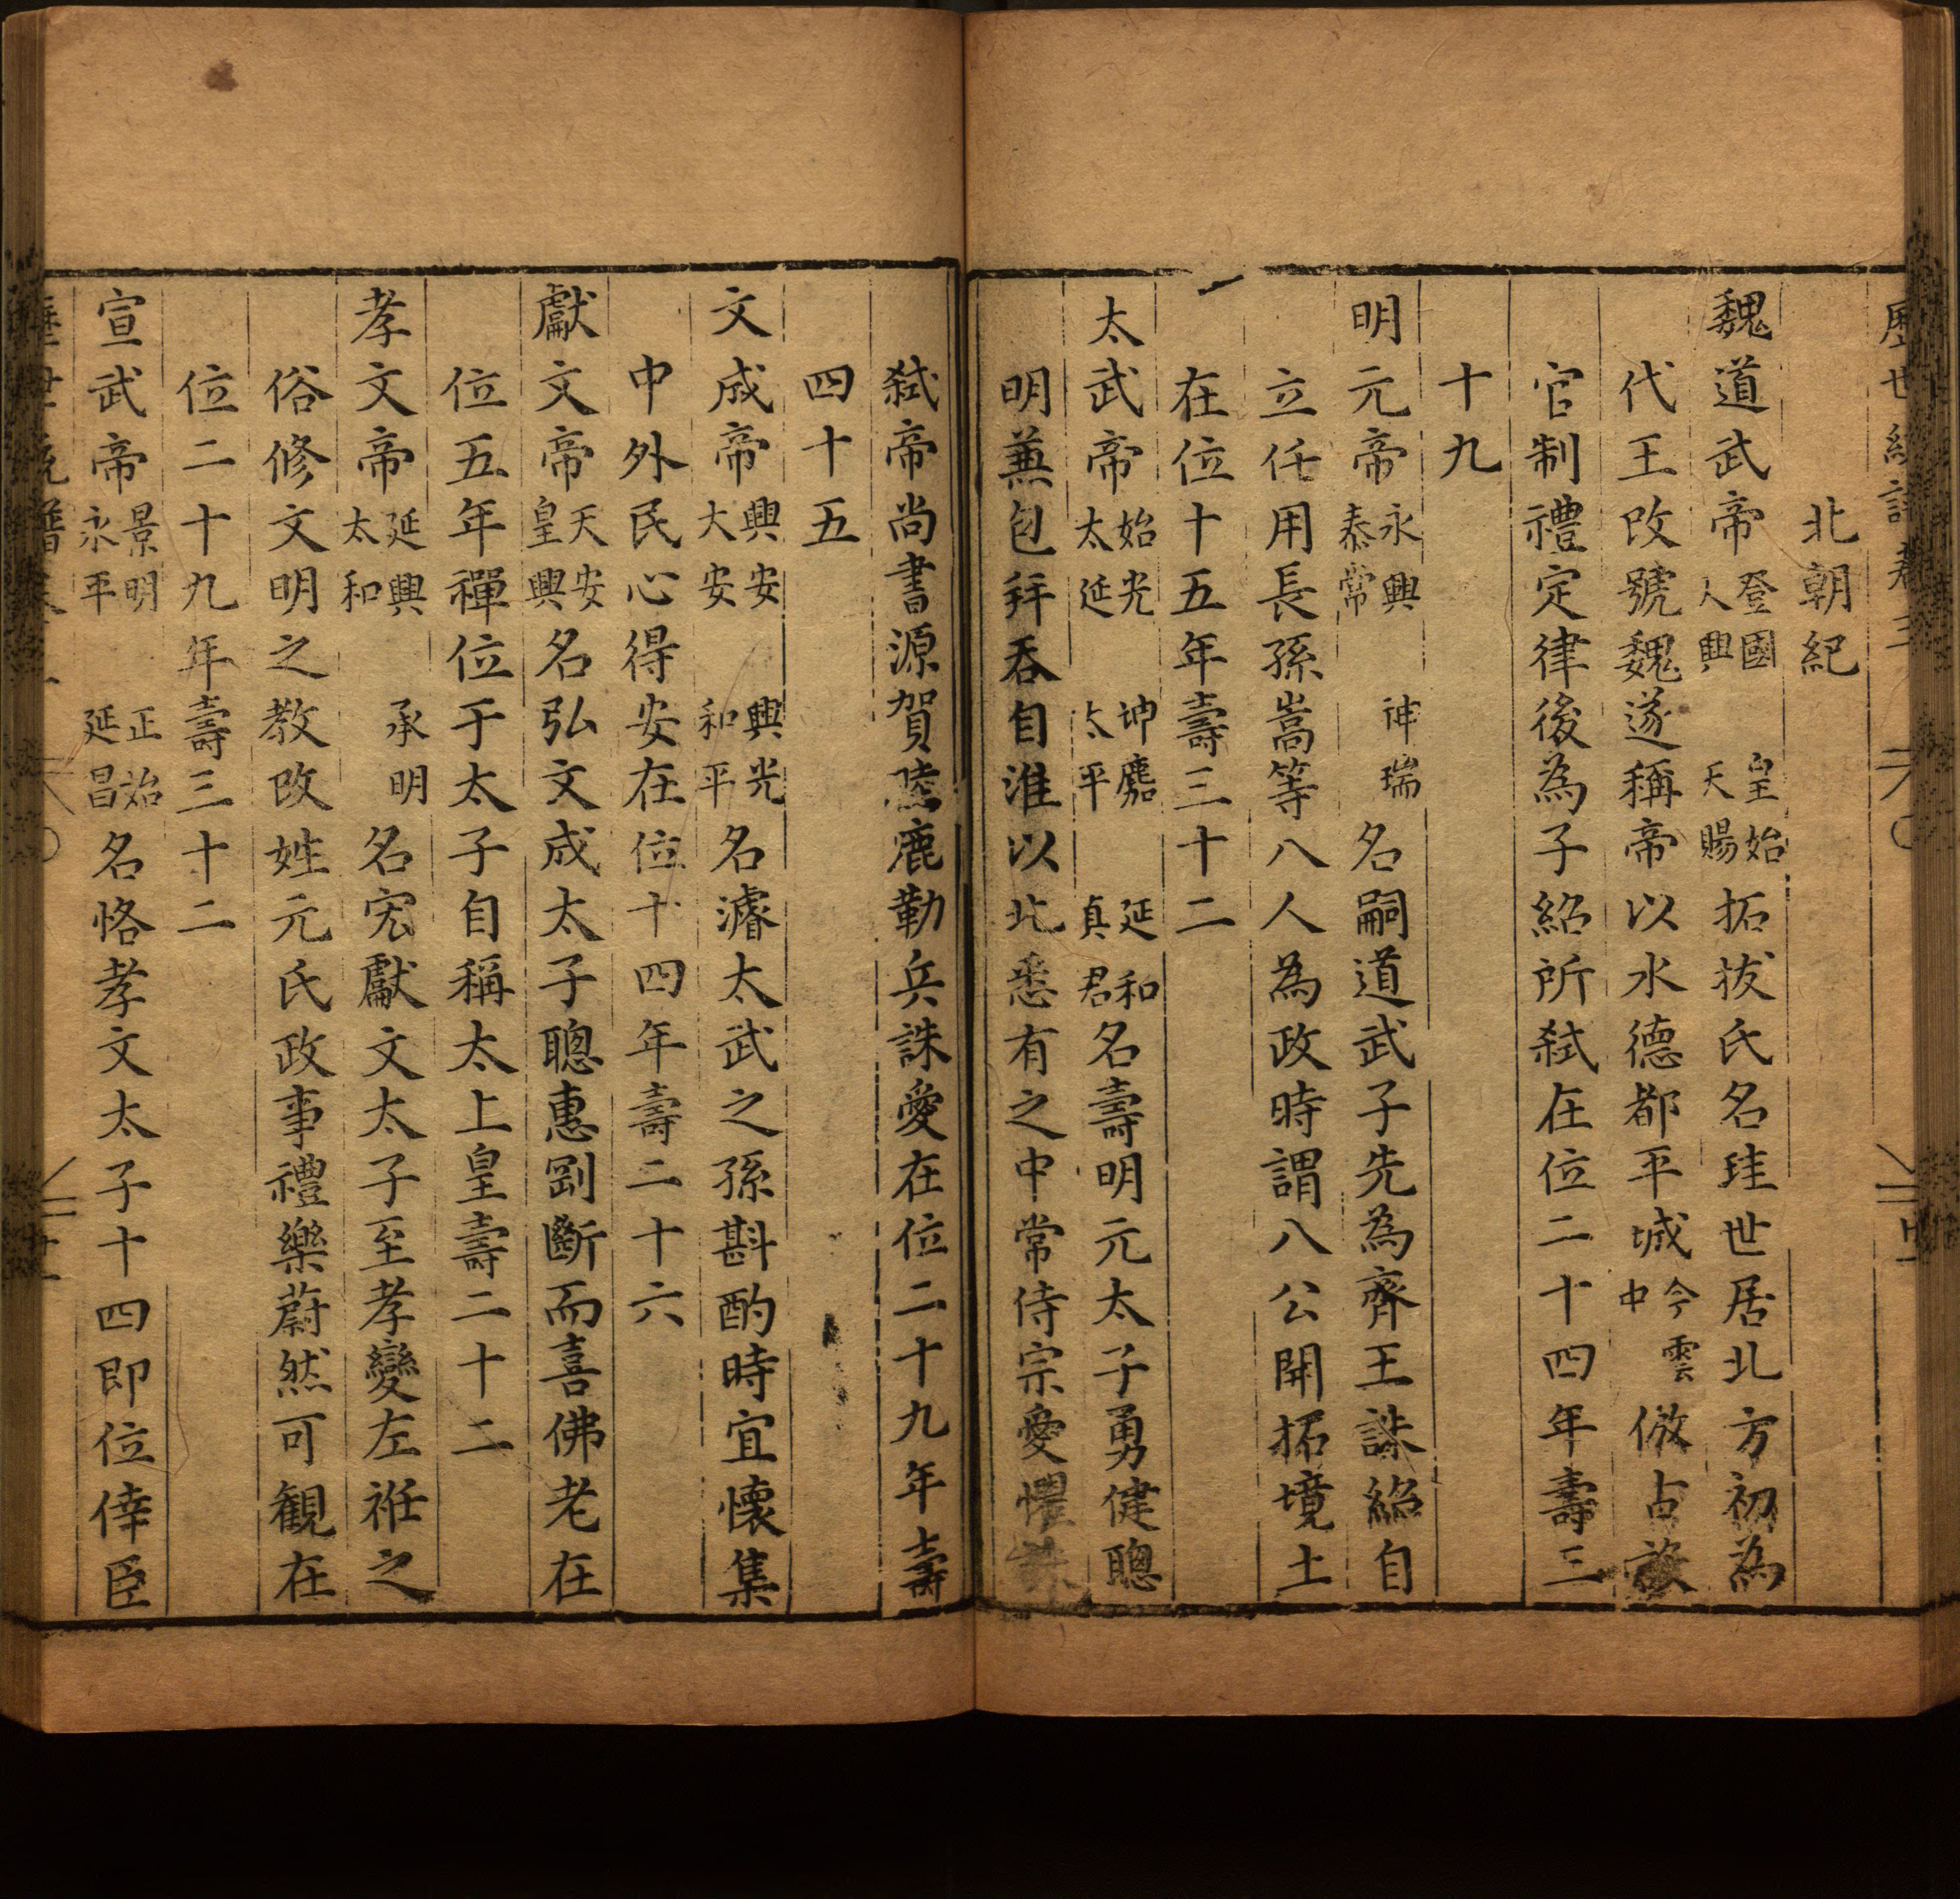 北朝紀
魏道武帝登國皇始人興天賜拓拔氏名珪世居北方初為
代王改號魏遂稱帝以水德都平城今雲中倣古設
官制禮定律後為子紹所弒在位二十四年壽三
十九
明元帝永興神瑞泰常名嗣道武子先為齊王誅紹自
立任用長孫嵩等八人為政時謂八公開拓境土
在位十五年壽三十二
太武帝始光坤麍延和太延太平真君名壽明元太子勇健聰
明兼包拜吞自淮以北悉有之中常侍宗愛懼
弒帝尚書源賀陸鹿勒兵誅愛在位二十九年壽
四十五
文成帝興安興光大安和平名濬太武之孫斟酌時宜懷集
中外民心得安在位十四年壽二十六
獻文帝天安皇興名弘文成太子聰惠剛斷而喜佛老在
位五年禪位于太子自稱太上皇壽二十二
孝文帝延興承明太和名宏獻文太子至孝變左袵之
俗修文明之教改姓元氏政事禮樂蔚然可觀在
位二十九年壽三十二
宣武帝景明正始永平延昌名恪孝文太子十四即位倖臣